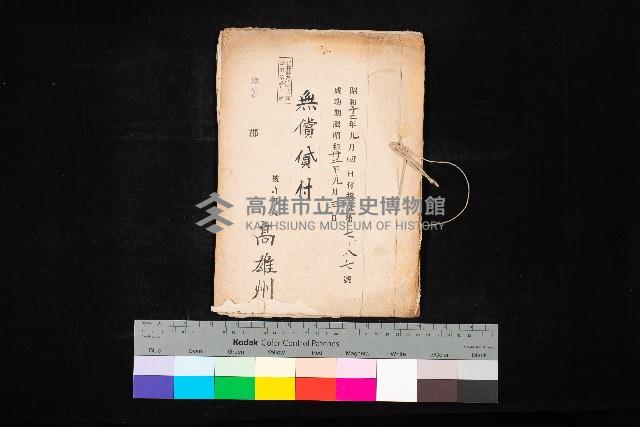 昭和十二年九月四日付指令第七〇八七號
成功期限昭和廿二年九月三日
無償貸付
郡
高雄州
高雄市立歷史博物館
KAOHSIUNG MUSEUM OF HISTORY
Kodak Color Control Patches
Blue Green Yellow Red Magenta White 3/Color Black